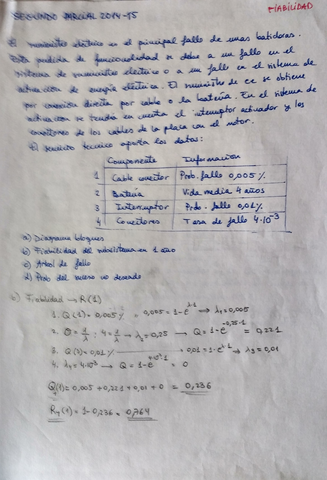 SEGUNDO PARCIAL 2014-15
FIABILIDAD
El suministro eléctrico es el principal fallo de unas batidoras.
Esta pérdida de funcionalidad se debe a un fallo en el
sistema de suministro eléctrico o a un fallo en el sistema de
activación de energía eléctrica. El suministro de ee se obtiene
por conexión directa por cable o la batería. En el sistema de
activación se tendrá en cuenta el interruptor activador y los
conectores de los cables de la placa con el motor.
El servicio técnico aporta los datos:
Componente Información
1 Cable conector Prob. fallo 0,005%
2 Batería Vida media 4 años
3 Interruptor Prob. fallo 0,01%
4 Conectores Tasa de fallo 4·10⁻³
a) Diagrama bloques
b) Fiabilidad del sistema en 1 año
c) Árbol de fallo
d) Prob del suceso no deseado
Fiabilidad → R(1)
1. Q(1) = 0,005% 0,005 = 1-e^-λ·1 → λ₁ = 0,005
2. θ = 1/λ ; 4 = 1/λ → λ₂ = 0,25 → Q = 1-e^-0,25·1 = 0,221
3. Q(1) = 0,01% 0,01 = 1-e^-λ·1 → λ₃ = 0,01
4. λ₄ = 4·10⁻³ → Q = 1-e = 0
Q(1) = 0,005 + 0,221 + 0,01 + 0 = 0,236
R(1) = 1 - 0,236 = 0,764